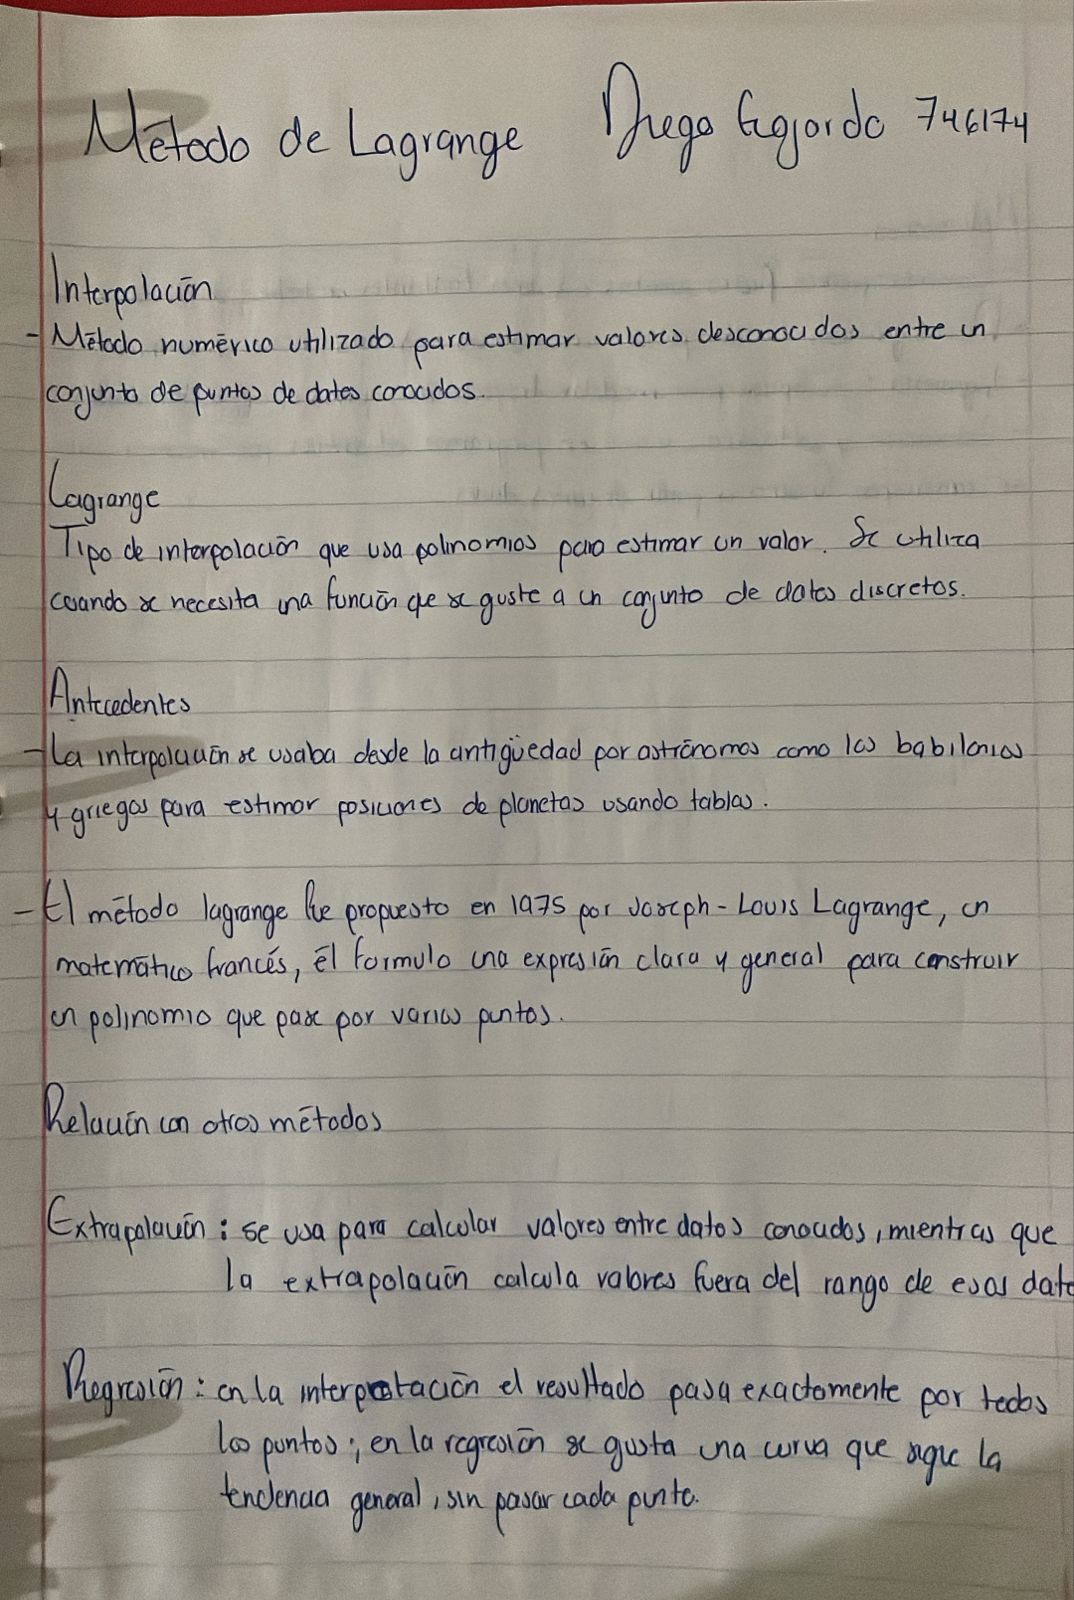 Método de Lagrange Diego Gajardo 746174
Interpolación
- Método numérico utilizado para estimar valores desconocidos entre un
conjunto de puntos de datos conocidos.
Lagrange
Tipo de interpolación que usa polinomios para estimar un valor. Se utiliza
cuando se necesita una función que se guste a un conjunto de datos discretos.
Antecedentes
- La interpolación se usaba desde la antigüedad por astrónomos como los babilonios
y griegos para estimar posiciones de planetas usando tablas.
- El método lagrange fue propuesto en 1975 por Joseph-Louis Lagrange, un
matemático francés, él formulo una expresión clara y general para construir
un polinomio que pase por varios puntos.
Relación con otros métodos
Extrapolación: se usa para calcular valores entre datos conocidos, mientras que
la extrapolación calcula valores fuera del rango de esos dato
Regresión: en la interpretación el resultado pasa exactamente por todos
los puntos; en la regresión se gusta una curva que sigue la
tendencia general, sin pasar cada punto.